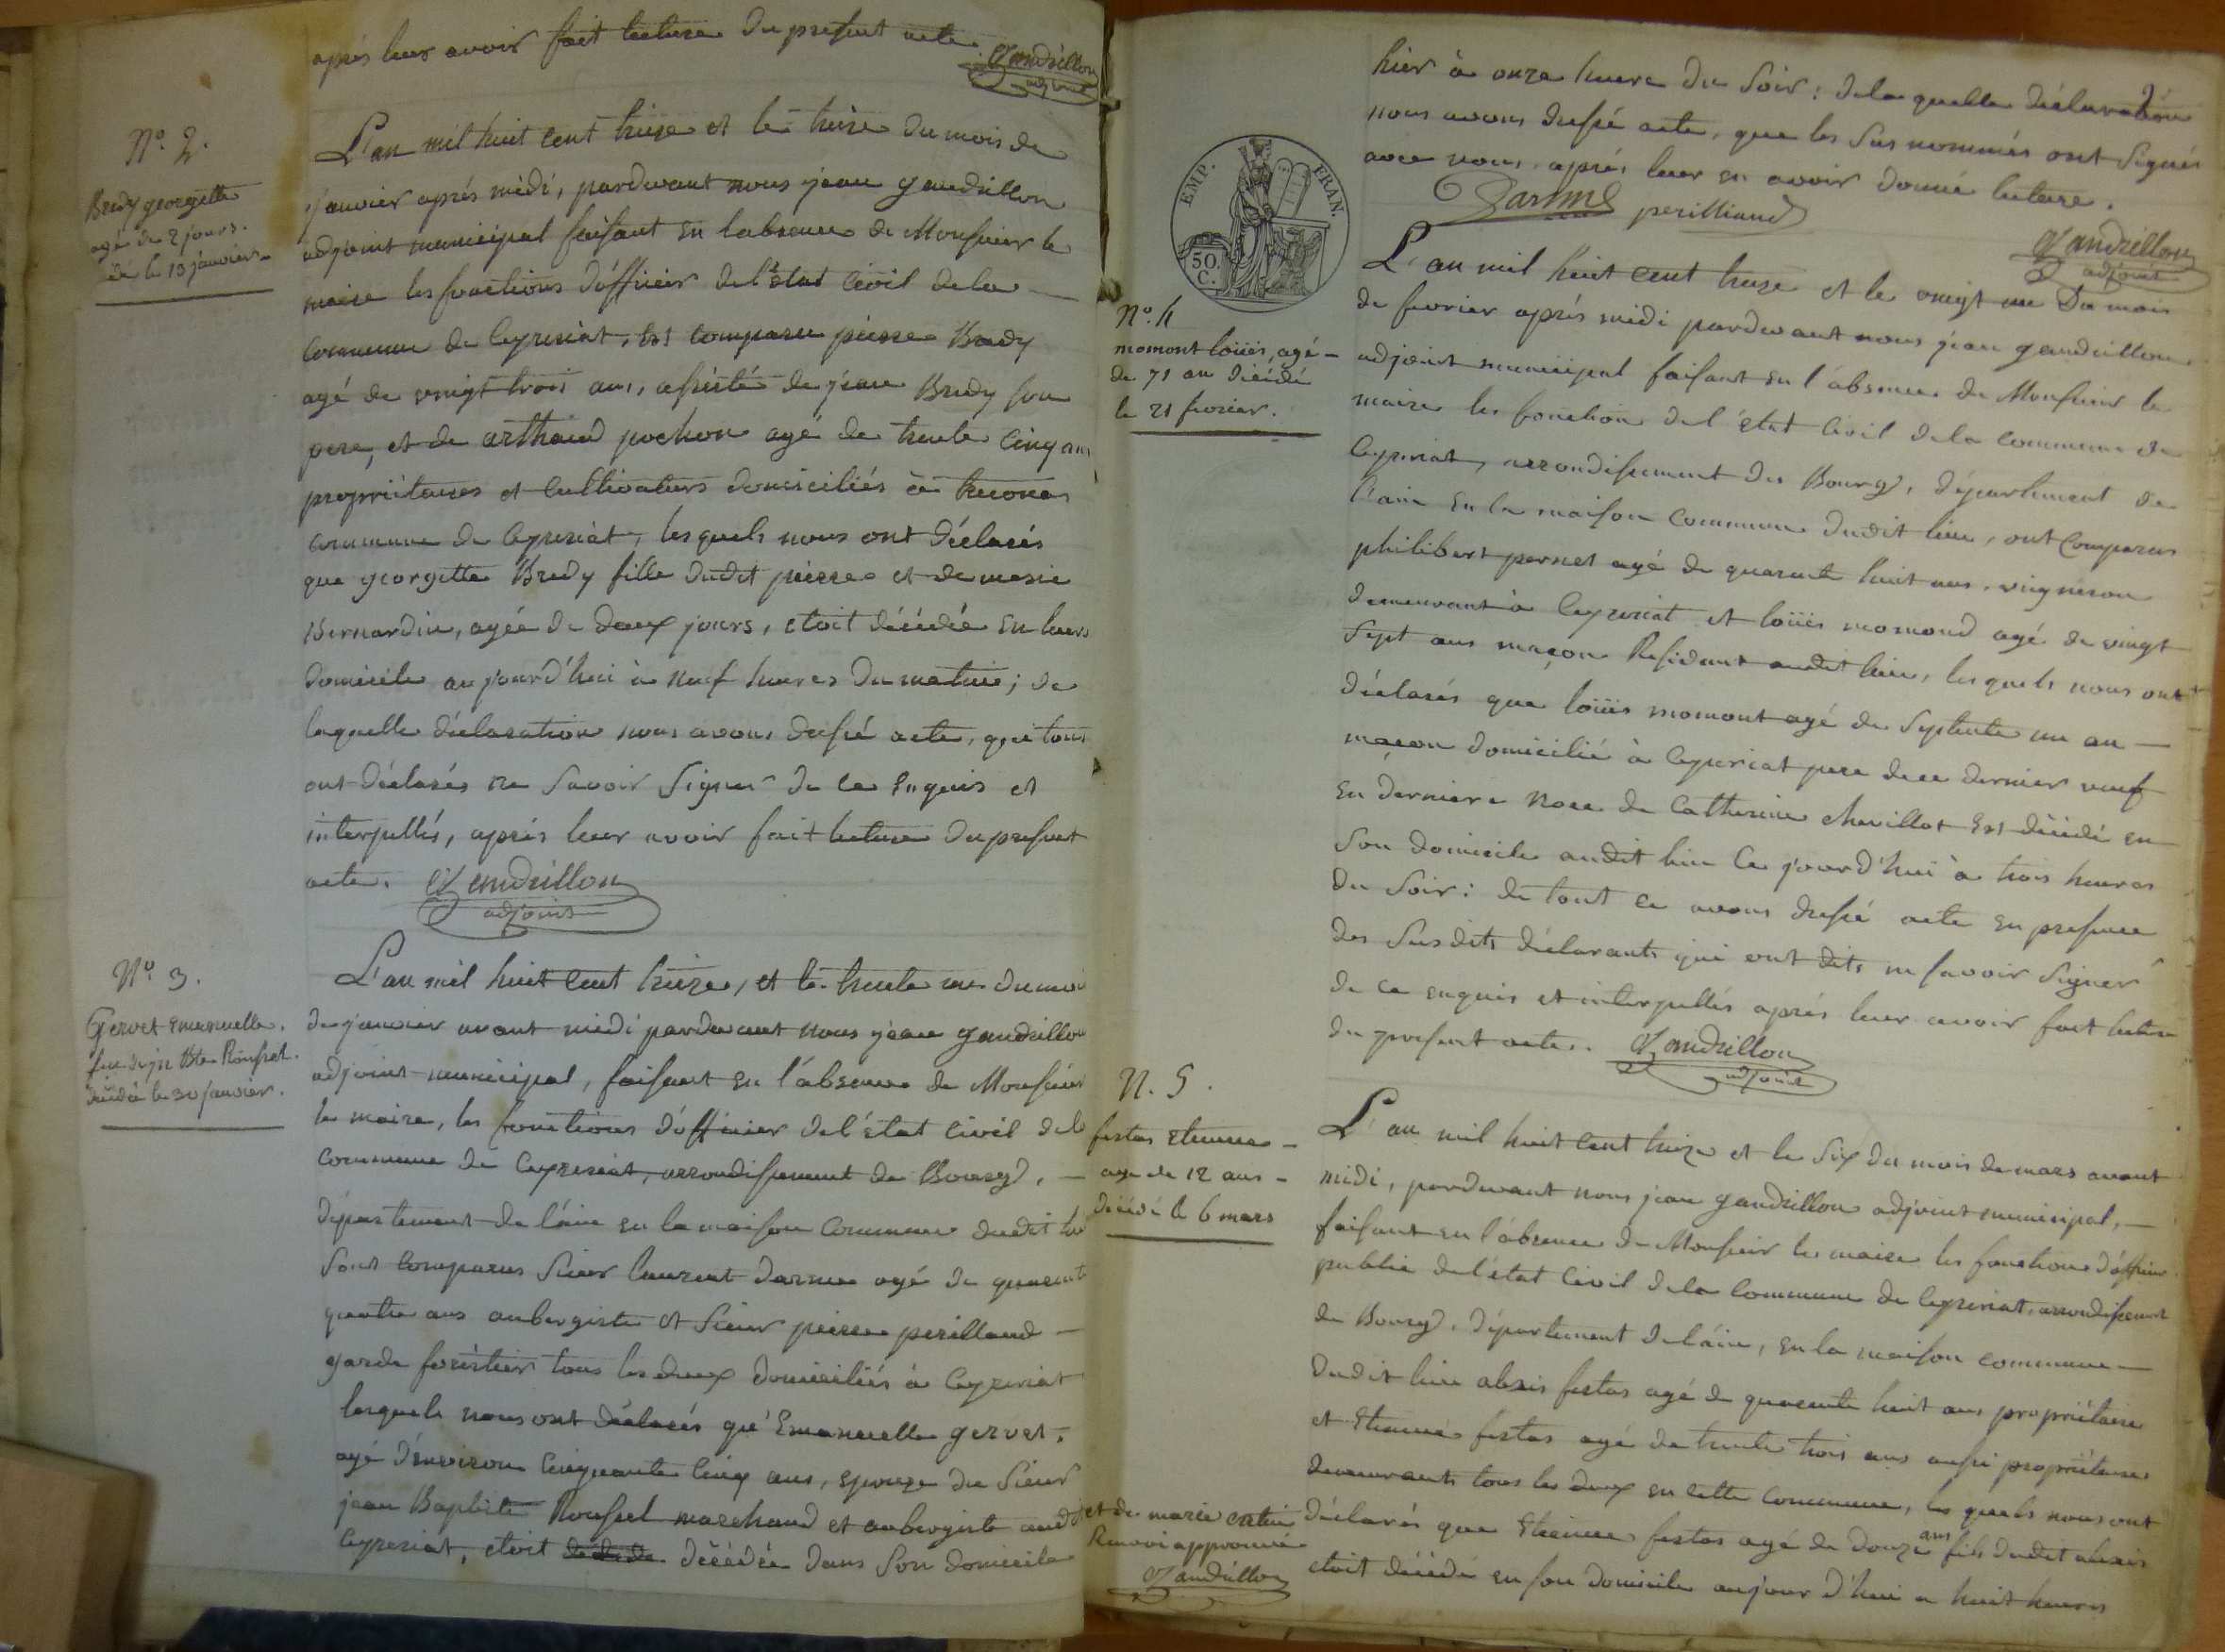 après leur avoir fait lecture du present acte.
Gandrillon
adjoint
N.º 2.
Brudy georgette
agé de 2 jours.
dé le 13 janvier
L'an mil huit cent treize et le treize du mois de
janvier après midi, pardevant nous jean gandrillon
adjoint municipal faisant en l'absence de Monsieur le
maire les fonctions d'officier de l'état civil de la
commune de Ceyzeriat, est comparu pierre Brudy
agé de vingt trois ans, assisté de jean Brudy son
pere, et de arthaud pochon agé de trente cinq ans
propriétaires et cultivateurs domiciliés à
commune de Ceyzeriat, lesquels nous ont déclarés
que georgette Brudy fille dudit pierre et de marie
Bernardin, agée de deux jours, etoit décédée en leurs
domicile aujourd'hui à neuf heures du matin; de
laquelle déclaration nous avons dressé acte, qui tous
ont déclarés ne savoir signer de ce enquis et
interpellés, après leur avoir fait lecture du present
acte. Gandrillon
adjoint
N.º 3.
Gervet Emanuelle.
fe de jn Bte Roussel.
décédé le 30 janvier.
L'an mil huit cent treize, et le trente un du mois
de janvier avant midi pardevant nous jean gandrillon
adjoint municipal, faisant en l'absence de Monsieur
le maire, les fonctions d'officier de l'état civil de la
commune de Ceyzeriat, arrondissement de Bourg,
département de l'ain en la maison commune dudit lieu
sont comparus sieur laurent darme agé de quarante
quatre ans aubergiste et sieur pierre perilland
garde forêstier tous les deux domiciliés à Ceyzeriat
lesquels nous ont déclarés qu'Emanuelle gervet,
agé d'environ cinquante cinq ans, epouze du sieur
jean Baptiste Roussel marchand et aubergiste audit
Ceyzeriat, etoit décédée dans son domicile
2
hier à onze heure du soir: de la quelle déclaration
nous avons dressé acte, que les sus nommés ont signés
avec nous, après leur en avoir donné lecture.
Darme perilliand
Gandrillon
adjoint
EMP. FRAN.
50. C.
N.º 4
momont loüis, agé
de 71 an décédé
le 21 fevrier.
L'an mil huit cent treize et le vingt un du mois
de fevrier après midi pardevant nous jean gandrillon
adjoint municipal faisant en l'absence de Monsieur le
maire les fonction de l'état civil de la commune de
Ceyzeriat, arrondissement de Bourg, département de
l'ain en la maison commune dudit lieu, ont comparus
philibert pernet agé de quarante huit ans, vigneron
demeurant à Ceyzeriat et loüis momond agé de vingt
sept ans maçon Residant audit lieu, lesquels nous ont
déclarés que loüis momont agé de septente un an
maçon domicilié à Ceyzeriat pere de ce dernier veuf
en derniere noce de Catherine chevillot est décédé en
son domicile audit lieu ce jourd'hui à trois heures
du soir: de tout ce avons dressé acte en presence
des susdits déclarants qui ont dits ne savoir signer
de ce enquis et interpellés après leur avoir fait lecture
du present acte. Gandrillon
adjoint
N. 5.
festas Etienne
age de 12 ans
décédé le 6 mars
L'an mil huit cent treize et le six du mois de mars avant
midi, pardevant nous jean gandrillon adjoint municipal,
faisant en l'absence de Monsieur le maire les fonctions d'officier
public de l'état civil de la commune de Ceyzeriat, arrondissement
de Bourg, département de l'ain, en la maison commune
dudit lieu alexis festas agé de quarente huit ans propriétaire
et Etienne festas agé de trente trois ans aussi propriétaire
demeurants tous les deux en cette commune, les quels nous ont
déclarés que Etienne festas agé de douze ans fils dudit alexis
et de marie
Renvoi approuvé
Gandrillon
etoit décédé en son domicile aujourd'hui a huit heures